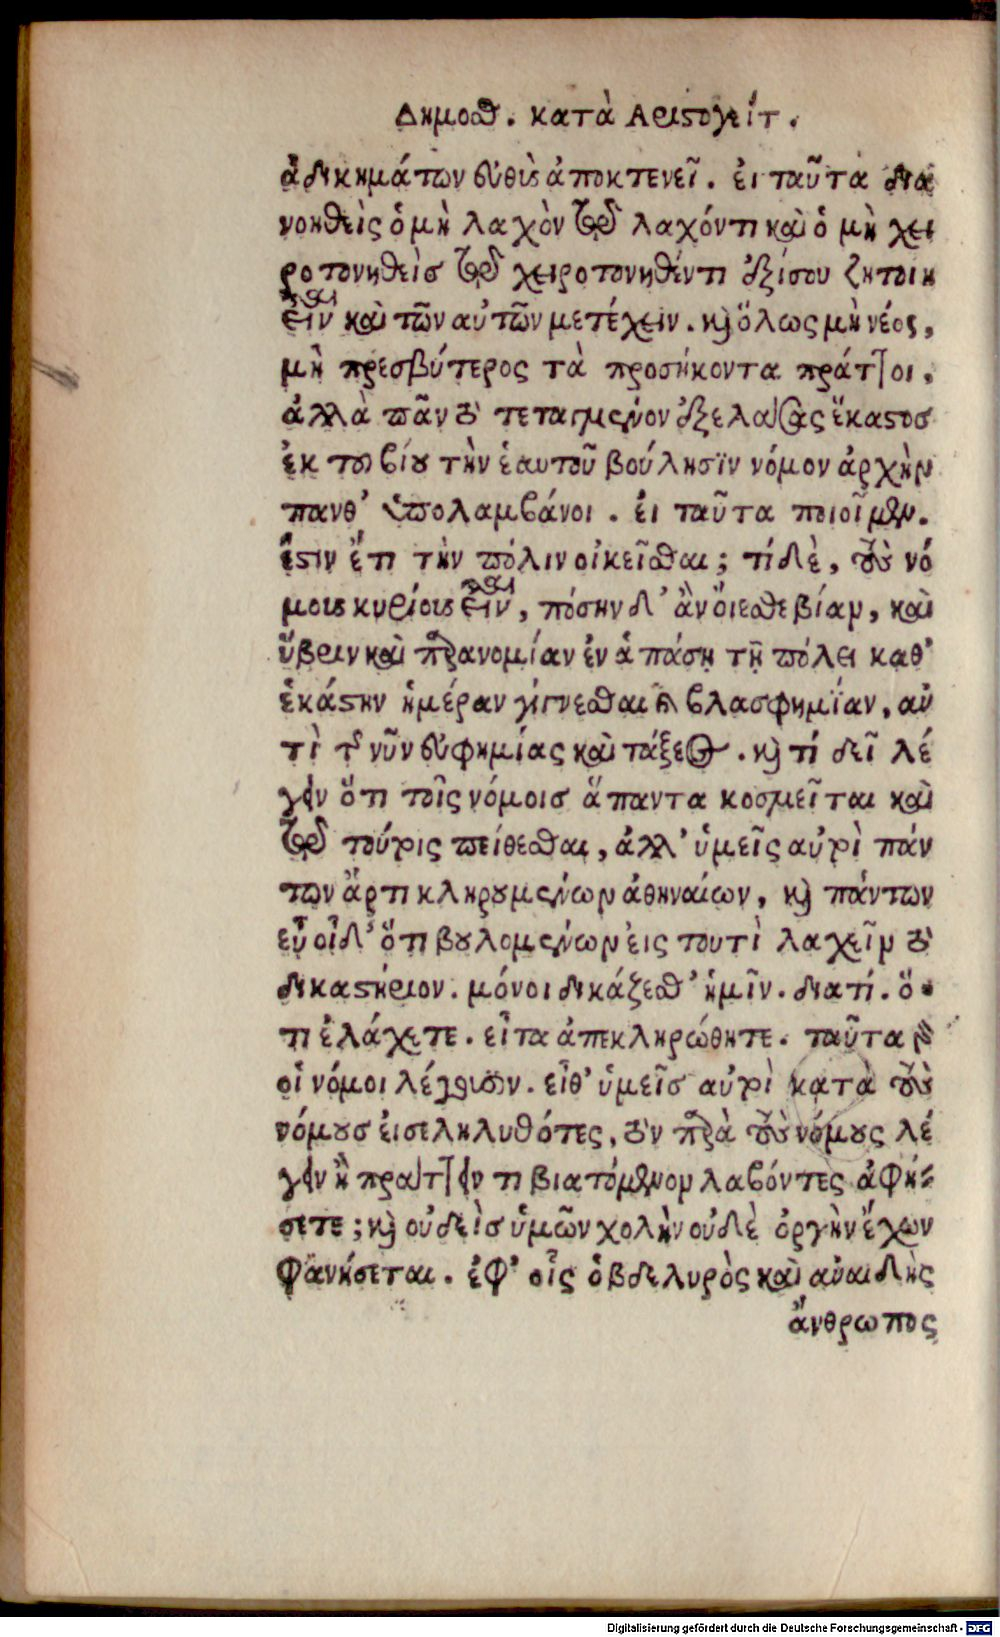 Δημοσθ. κατὰ Αριστογείτ.
ἀδικημάτων εὐθὺς ἀποκτενεῖ. ἐι ταῦτα δια
νοηθεὶς ὁ μὴ λαχὸν τῷ λαχόντι καὶ ὁ μὴ χει
ροτονηθεὶσ τῷ χειροτονηθέντι ἐξίσου ζητοιη
εἶναι καὶ τῶν αὐτῶν μετέχειν. καὶ ὅλως μὴ νέος,
μὴ πρεσβύτερος τὰ προσήκοντα πράττοι.
ἀλλὰ πᾶν τὸ τεταγμένον ἐξελάσας ἕκαστοσ
ἐκ του βίου τὴν ἑαυτοῦ βούλησϊν νόμον ἀρχὴν
πανθ' ὑπολαμβάνοι. ἐι ταῦτα ποιοῖμεν.
ἔστιν ἔτι τὴν πόλιν οἰκεῖσθαι; τί δὲ, τοὺς νό
μους κυρίους εἶναι, πόσην δ' ἂν ὄιεσθε βίαν, καὶ
ὕβριν καὶ παρανομίαν ἐν ἁπάσῃ τῇ πόλει καθ'
ἑκάστην ἡμέραν γίγνεσθαι καὶ βλασφημϊαν, αν
τὶ τῆς νῦν εὐφημίας καὶ τάξεως. καὶ τί δεῖ λέ
γειν ὅτι τοῖς νόμοισ ἅπαντα κοσμεῖται καὶ
τῷ τούτοις πείθεσθαι, ἀλλ' ὑμεῖς αὐτοὶ πάν
των ἄρτι κληρουμένων ἀθηναίων, καὶ πάντων
εὖ οἶδ' ὅτι βουλομένων εἰς τουτὶ λαχεῖν τὸ
δικαστήριον. μόνοι δικάζεσθ' ἡμῖν. διατί. ὅ
τι ἐλάχετε. εἶτα ἀπεκληρώθητε. ταῦτα δ'
οἱ νόμοι λέγουσιν. εἶθ' ὑμεῖσ αὐτοὶ κατὰ τοὺς
νόμουσ ἐισεληλυθότες, τὸν παρὰ τοὺς νόμους λέ
γειν ἢ πράττειν τι βιαζόμενον λαβόντες ἀφή-
σετε; καὶ οὐδεὶσ ὑμῶν χολὴν οὐδὲ ὀργὴν ἔχων
φανήσεται. ἐφ' οἷς ὁ βδελυρὸς καὶ αναιδὴς
ἄνθρωπος
Digitalisierung gefördert durch die Deutsche Forschungsgemeinschaft - DFG